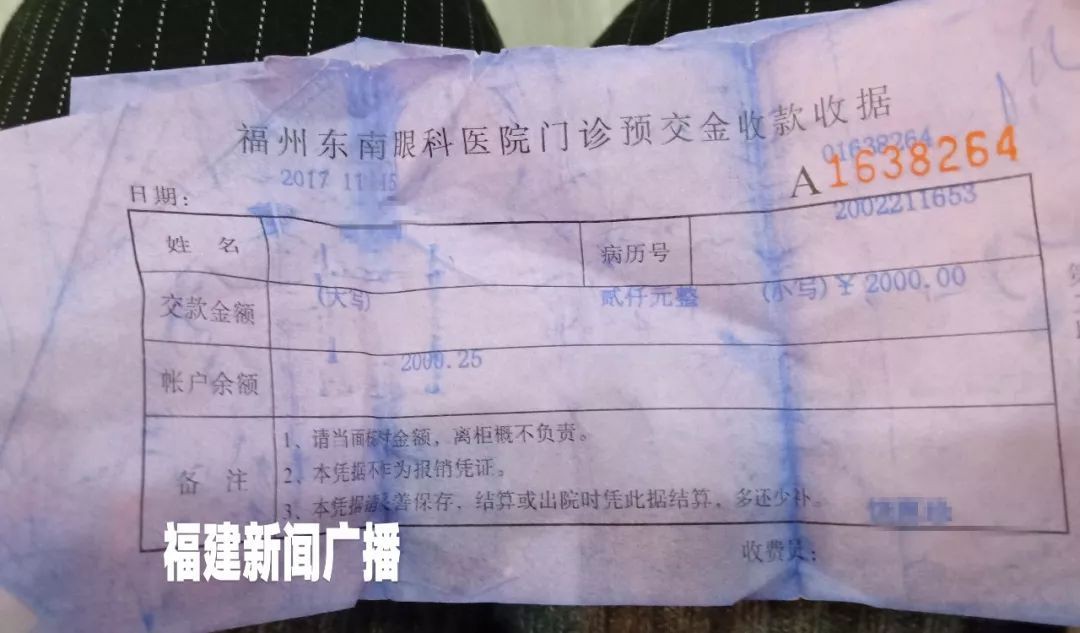 福州东南眼科医院门诊预交金收款收据
01638264
A1638264
日期： 2017 11 15
2002211653
姓 名 病历号
交款金额 (大写) 贰仟元整 (小写) ￥ 2000.00
帐户余额 2000.25
备 注
1、请当面核对金额，离柜概不负责。
2、本凭据不作为报销凭证。
3、本凭据请妥善保存，结算或出院时凭此据结算，多还少补。
收费员：
福建新闻广播